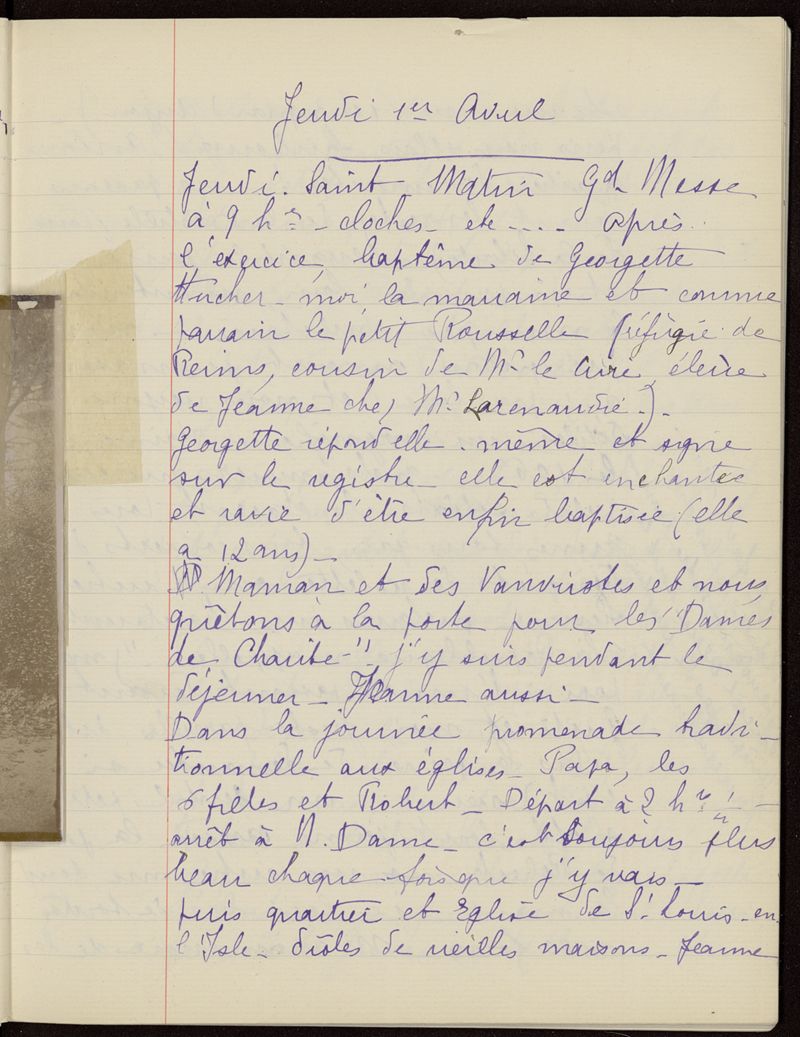 Jeudi 1er Avril
Jeudi. Saint. Matin Gd Messe
à 9 hes - cloches - etc .... après
l'exercice, baptême de Georgette
Hucher - moi, la marraine et comme
parrain le petit Rousselle (réfugié de
Reims, cousin de Mr le Curé élève
de Jeanne chez Mr Larenaudie.) -
Georgette répond elle. même et signe
sur le registre - elle est enchantée
et ravie d'être enfin baptisée (elle
a 12 ans) -
Maman et des Vanvirotes et nous
quêtons à la porte pour les "Dames
de Charité -" j'y suis pendant le
déjeuner - Jeanne aussi -
Dans la journée promenade tradi -
tionnelle aux églises - Papa, les
6 filles et Robert - Départ à 2 hes ½ -
arrêt à N. Dame - c'est toujours plus
beau chaque fois que j'y vais -
puis quartier et Eglise de St. Louis - en -
l'Isle - drôles de vieilles maisons - Jeanne